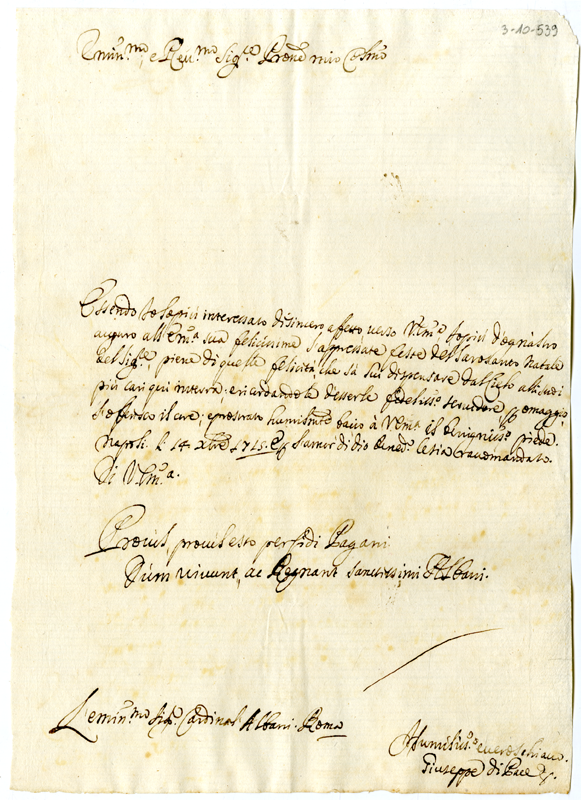 3-10-539
Emin.mo e Reu.mo Sig.re Prone mio Colmo
Essendo Io sopra interessato di sincero affetto verso V.Em.a sopra d'ogn'altro
auguro all'Em.a sua felicissime l'appressate feste del sacrosanto Natale
del Sig.re, piene di quelle felicità che si può dispensare dal Cielo alli suoi
più cari qui in terra: e ricordandole d'esserle fedeliss.o servidore per omaggio,
le offerisco il core; e prostrato humilmte bacio à V.Emn.a il benigniss.o piede.
Napoli. li 14 Xbre 1715. E per l'amor di Dio la mia raccomandato.
Di V.Em.a.
Procul, procul esto perfidi Pagani
Dum vivunt, ac Regnant sanctissimi Albani.
L'emin.mo Sig.r Cardinal Albani. Roma
Humiliss.o e vero schiavo.
Giuseppe di Pace